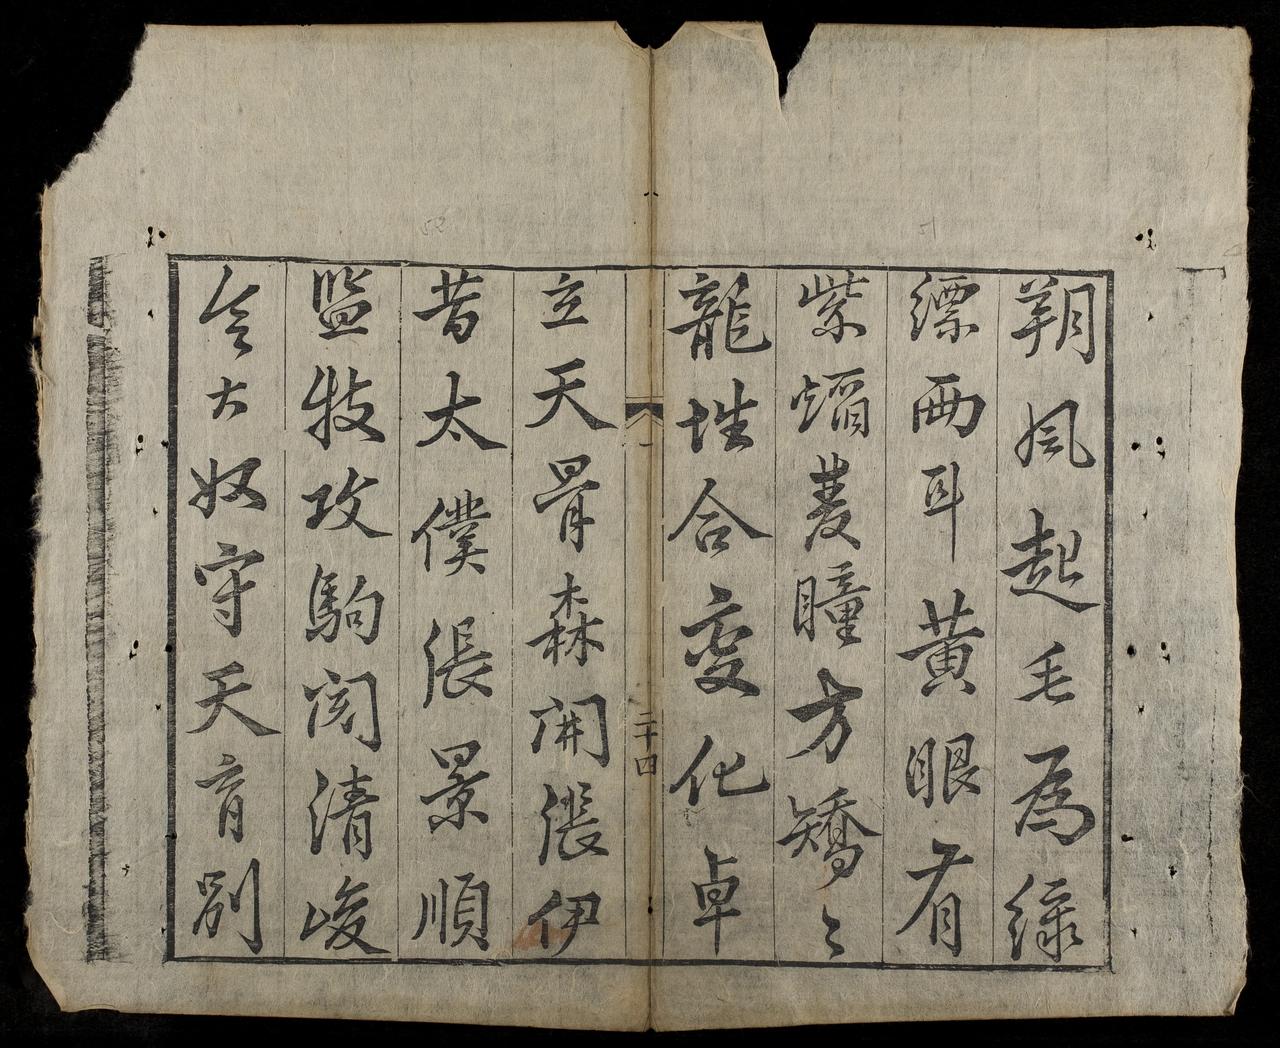 朔風起毛為綠
縹兩耳黃眼有
紫熖䨇瞳方矯〻
龍性合變化卓
立天骨森開張伊
昔太僕張景順
監牧攻駒閱清峻
令大奴守天育別
二十四